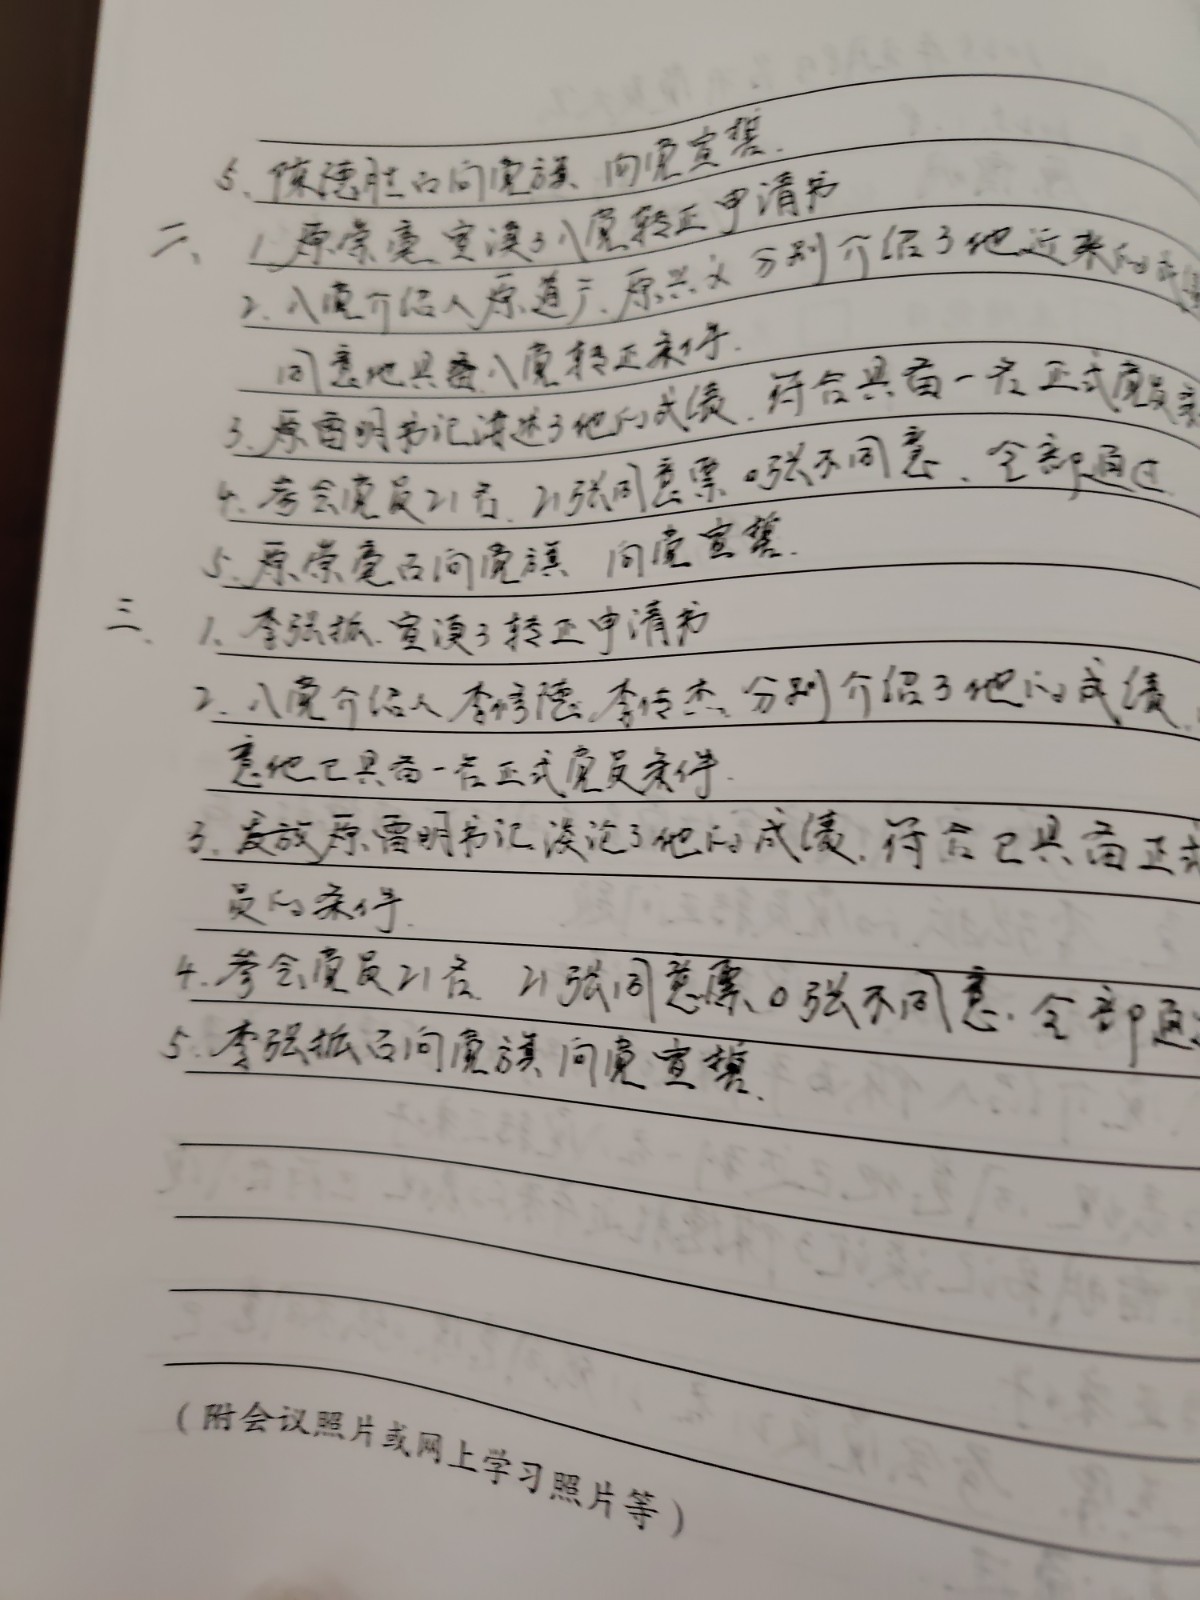 5. 陈德胜面向党旗、向党宣誓.
二、1. 原荣亮宣读了入党转正申请书
2. 入党介绍人原道广、原兴文分别介绍了他近来的成绩
同意他具备入党转正条件.
3. 原雷明书记讲述了他的成绩. 符合具备一名正式党员条
4. 参会党员21名. 21张同意票 0张不同意、全部通过
5. 原荣亮面向党旗 向党宣誓.
三、1. 李强振. 宣读了转正申请书
2. 入党介绍人李修德、李传杰、分别介绍了他的成绩.
意他已具备一名正式党员条件.
3. 原雷明书记谈论了他的成绩. 符合已具备正式
员的条件.
4. 参会党员21名. 21张同意票. 0张不同意. 全部通过
5. 李强振面向党旗 向党宣誓.
（附会议照片或网上学习照片等）